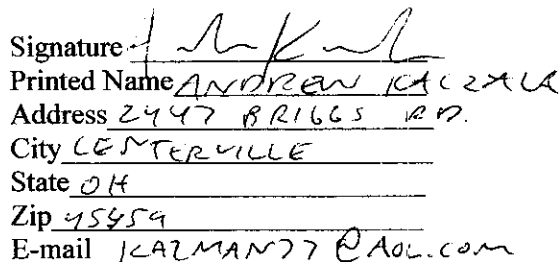 Signature
Printed Name ANDREW
Address 2447 BRIGGS RD.
City CENTERVILLE
State OH
Zip 45459
E-mail KAZMAN77@AOL.COM